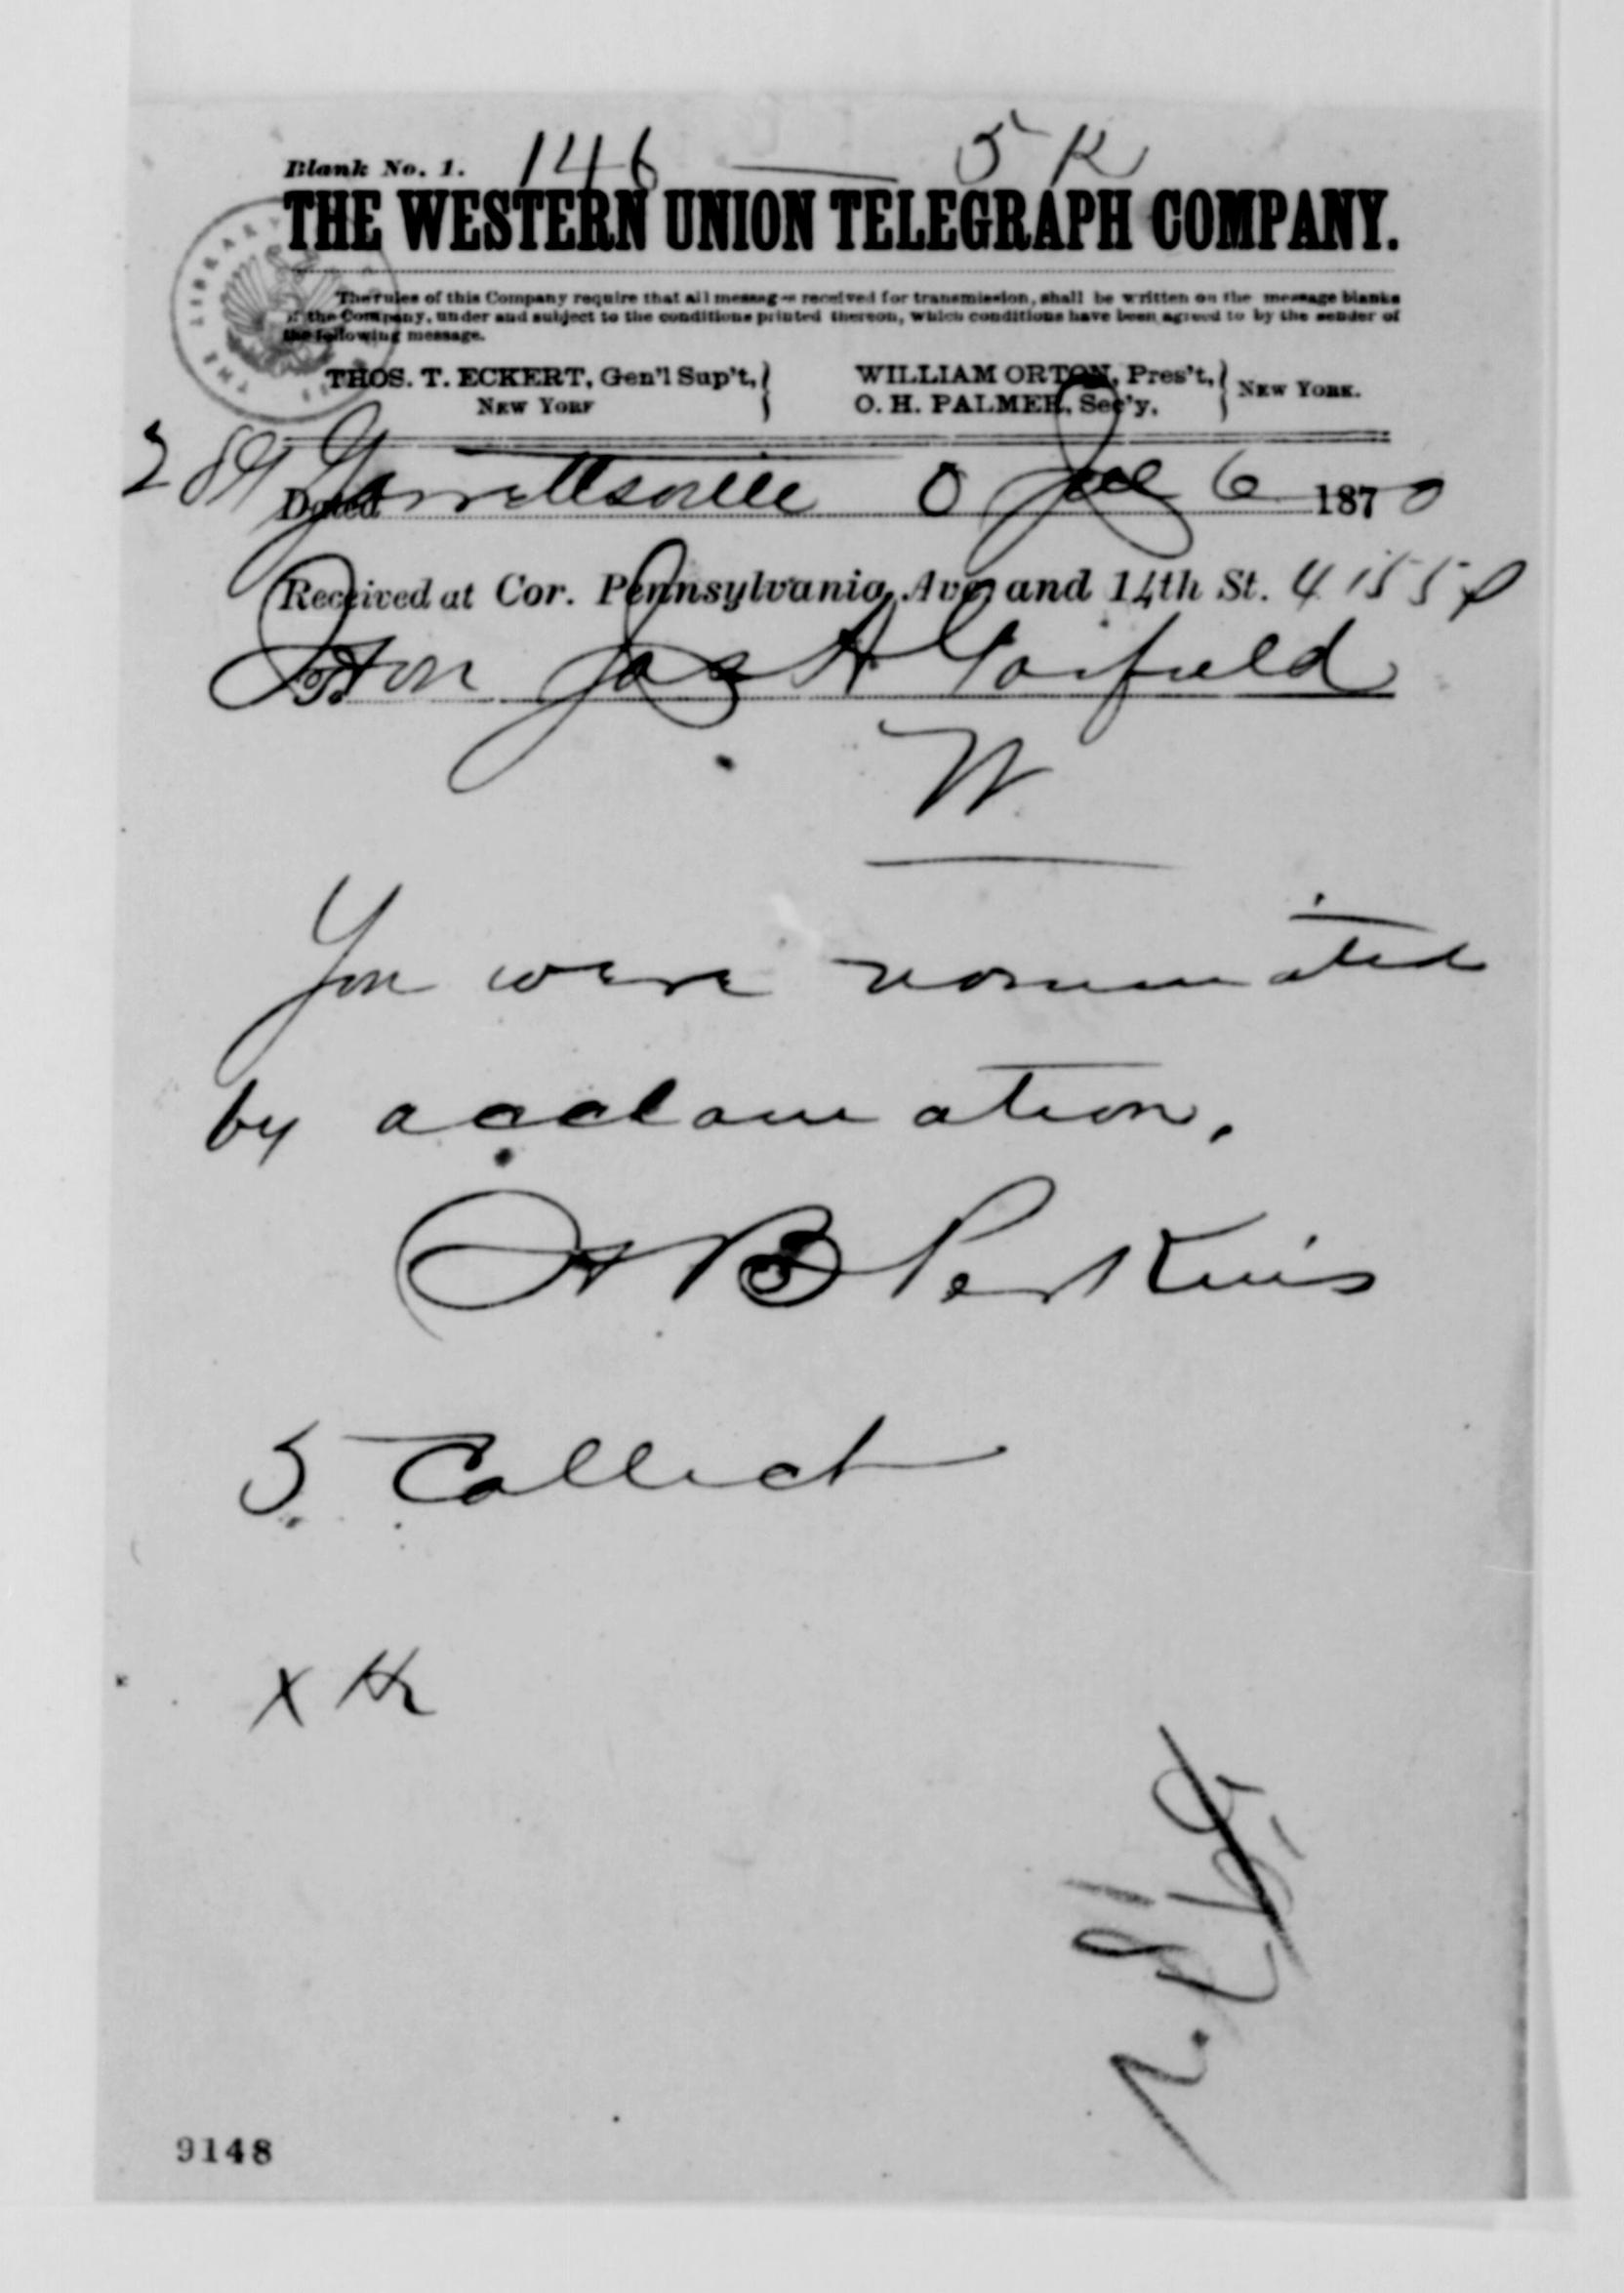 Blank No. 1. 146 — 5 K
THE WESTERN UNION TELEGRAPH COMPANY.
The rules of this Company require that all messages received for transmission, shall be written on the message blanks
of the Company, under and subject to the conditions printed thereon, which conditions have been agreed to by the sender of
the following message.
THOS. T. ECKERT, Gen'l Sup't, WILLIAM ORTON, Pres't,
NEW YORK O. H. PALMER, Sec'y, NEW YORK.
Dated Garrettsville O July 6 1870
Received at Cor. Pennsylvania Ave and 14th St. 4 15 5 P
To Hon Jas A Garfield
W.
You were nominated
by acclamation.
H B Perkins
5 Collect
9148